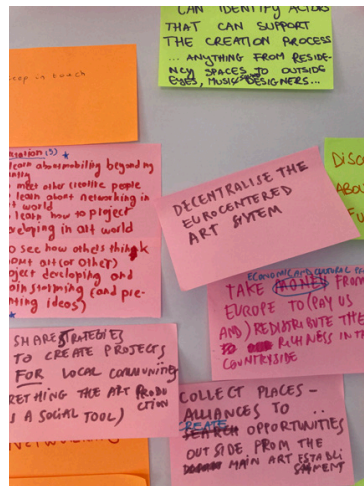 CAN IDENTIFY
THAT CAN SUPPORT
THE CREATION PROCESS
... ANYTHING FROM RESIDE-
NCY SPACES TO OUTSIDE
EYES, MUSIC DESIGNERS...
in touch
learn about mobility beyond my
meet other creative people
learn about networking in
art world
learn how to project
developing in art world
to see how others think
art (or other)
project developing and
(and pre-
nting ideas)
DECENTRALISE THE
EUROCENTERED
ART SYTEM
DISC
ABOU
ECONOMIC AND CULTURAL
TAKE MONEY FROM
EUROPE TO (PAY US
AND) REDISTRIBUTE THE
RICHNESS IN TH
COUNTRYSIDE
SHARE STRATEGIES
TO CREATE PROJECTS
FOR LOCAL COMMUNITIES
(RETHING THE ART PRODU
CTION
AS A SOCIAL TOOL)
COLLECT PLACES -
ALLIANCES TO ..
CREATE
SEARCH OPPORTUNITIES
OUTSIDE FROM THE
MAIN ART ESTABLI
SHMENT
NETWORKING